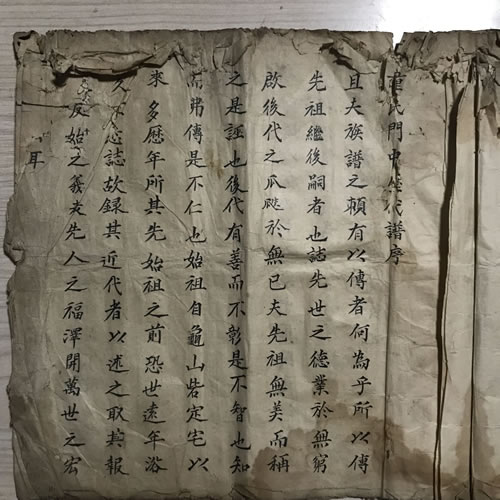 氏門中代譜序
且夫族譜之頼有以傳者何為乎所以傳
先祖繼後嗣者也詁先世之德業於無窮
啟後代之瓜瓞於無已夫先祖無美而稱
之是誣也後代有善而不彰是不智也知
而弗傳是不仁也始祖自龜山砦定宅以
來多歷年所其先始祖之前恐世遠年
久誌故録其近代者以述之取其報
反始之義夫先人之福澤開萬世之宏
耳